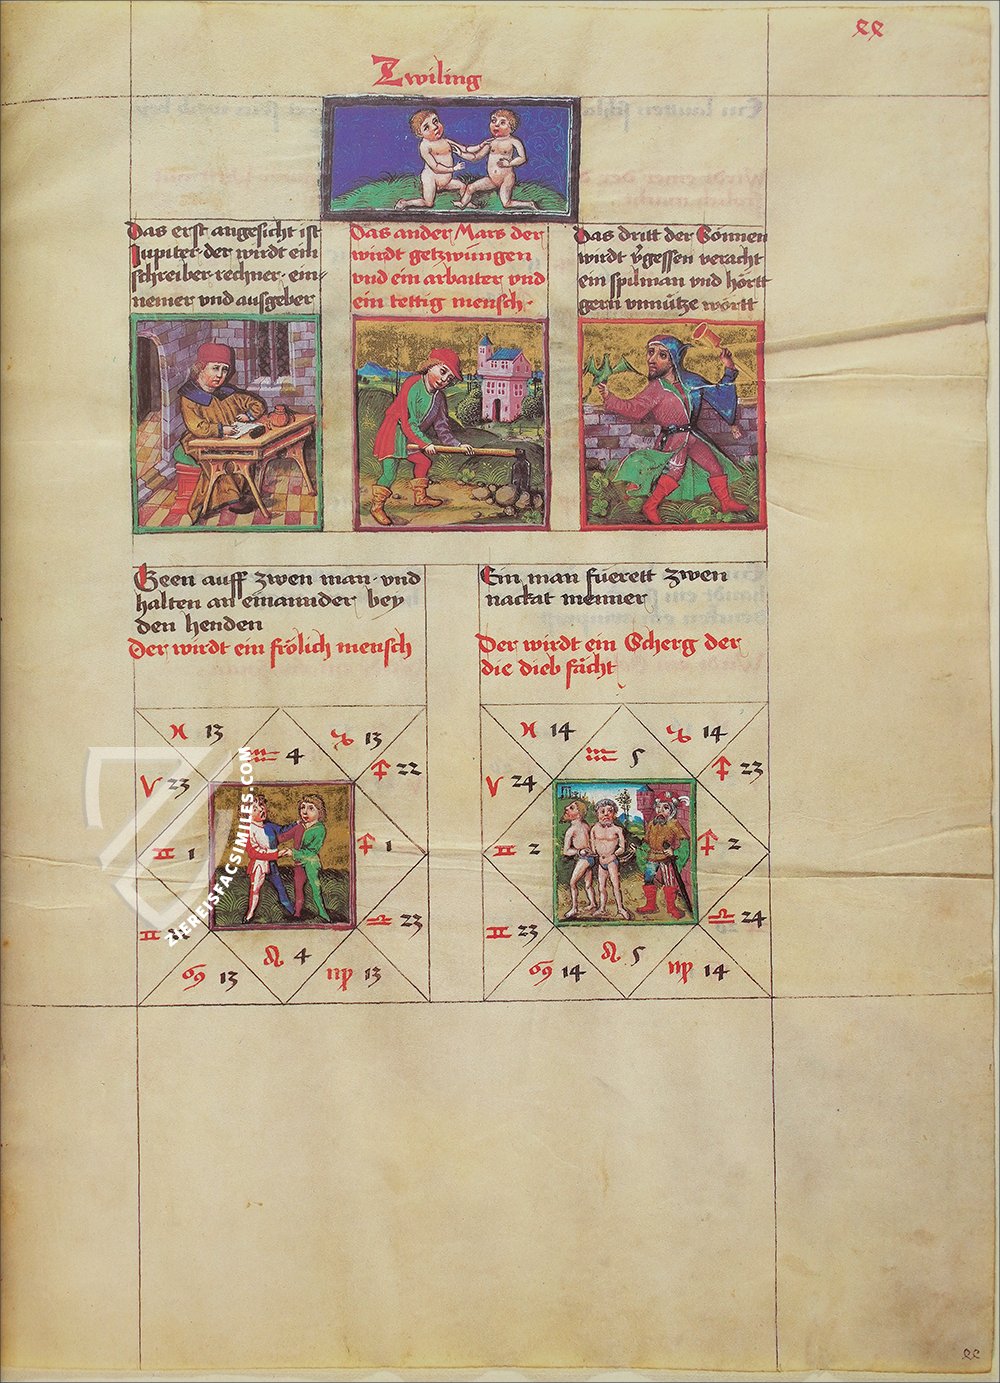 Zwiling
Das erst angesicht ist
Iupiter der wirdt ein
schreiber rechner ein-
nemer vnd ausgeber
Das ander Mars der
wirdt getzwungen
vnd ein arbaiter vnd
ein tettig mensch
Das dritt der Sonnen
wirdt vergessen veracht
ein spilman vnd hörtt
gern vnnütze wortt
Geen auff zwen man vnd
halten an einannder bey
den henden
Der wirdt ein frölich mensch
Ein man füerett zwen
nackat menner
Der wirdt ein Scherg der
die dieb fächt
♓ 13
♒ 4
♑ 13
♈ 23
♐ 22
♊ 1
♐ 1
♊
♎ 23
♋ 13
♌ 4
♍ 13
♓ 14
♒ 5
♑ 14
♈ 24
♐ 23
♊ 2
♐ 2
♊ 23
♎ 24
♋ 14
♌ 5
♍ 14
ZIEREISFACSIMILES.COM